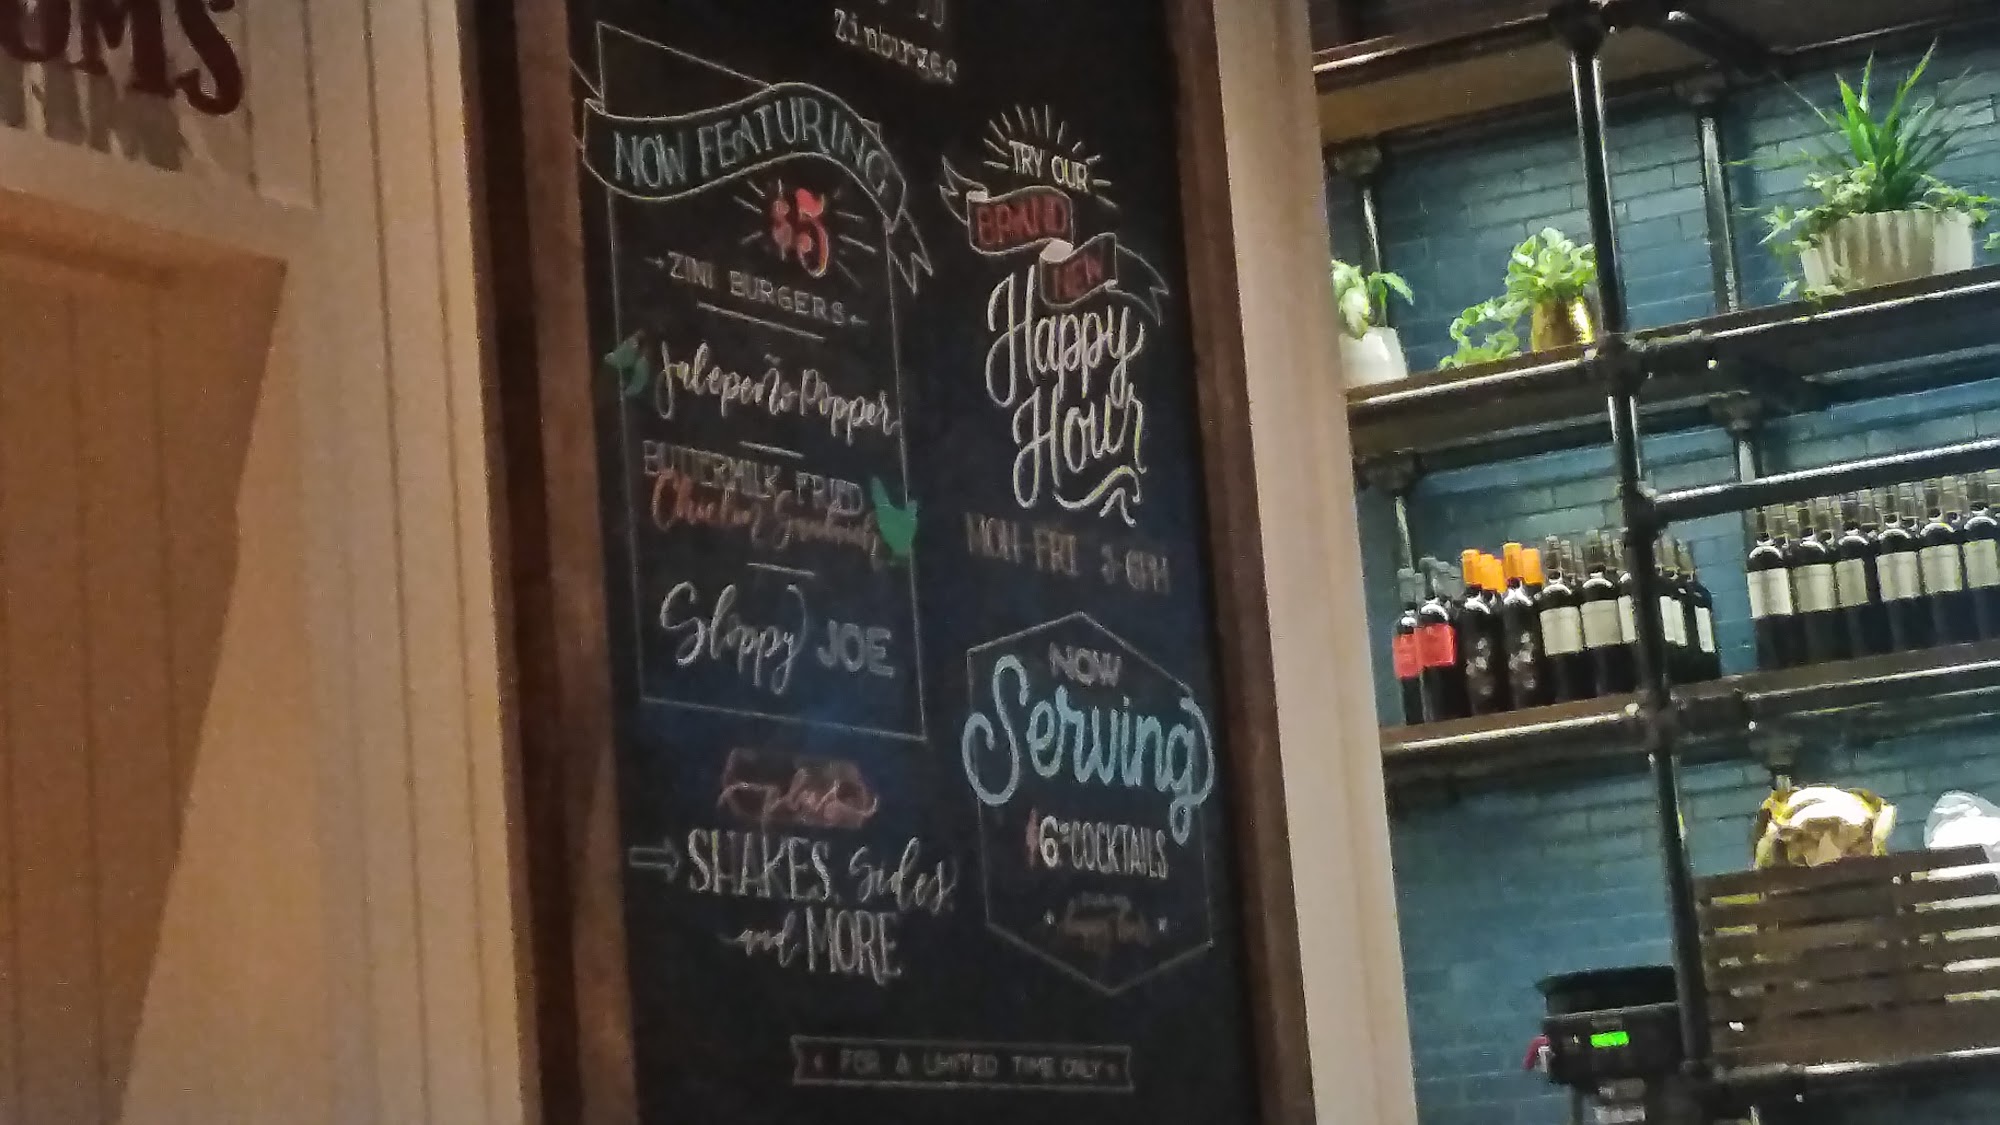 OMS
Zinburger
NOW FEATURING
$5
ZINI BURGERS
Jalepeño Popper
BUTTERMILK FRIED
Chicken Sandwich
Sloppy JOE
plus
SHAKES, Sides,
and MORE
TRY OUR
BRAND
NEW
Happy
Hour
MON-FRI 3-6PM
NOW
Serving
$6 COCKTAILS
happy hour
FOR A LIMITED TIME ONLY